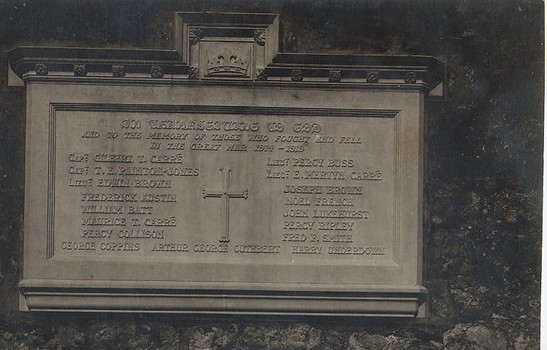 IN THANKSGIVING TO GOD
AND TO THE MEMORY OF THOSE WHO FOUGHT AND FELL
IN THE GREAT WAR 1914-1919
CAPT. GILBERT T. CARRÉ
CAPT. T. E. PAINTON-JONES
LIEUT. EDWIN BROWN
FREDERICK AUSTIN
WILLIAM BATT
MAURICE T. CARRÉ
PERCY COLLISON
LIEUT. PERCY BUSS
LIEUT. E. MERVYN CARRÉ
JOSEPH BROWN
NOEL FRENCH
JOHN LUKEHURST
PERCY RIPLEY
FRED F. SMITH
GEORGE COPPINS ARTHUR GEORGE CUTHBERT HARRY UNDERDOWN